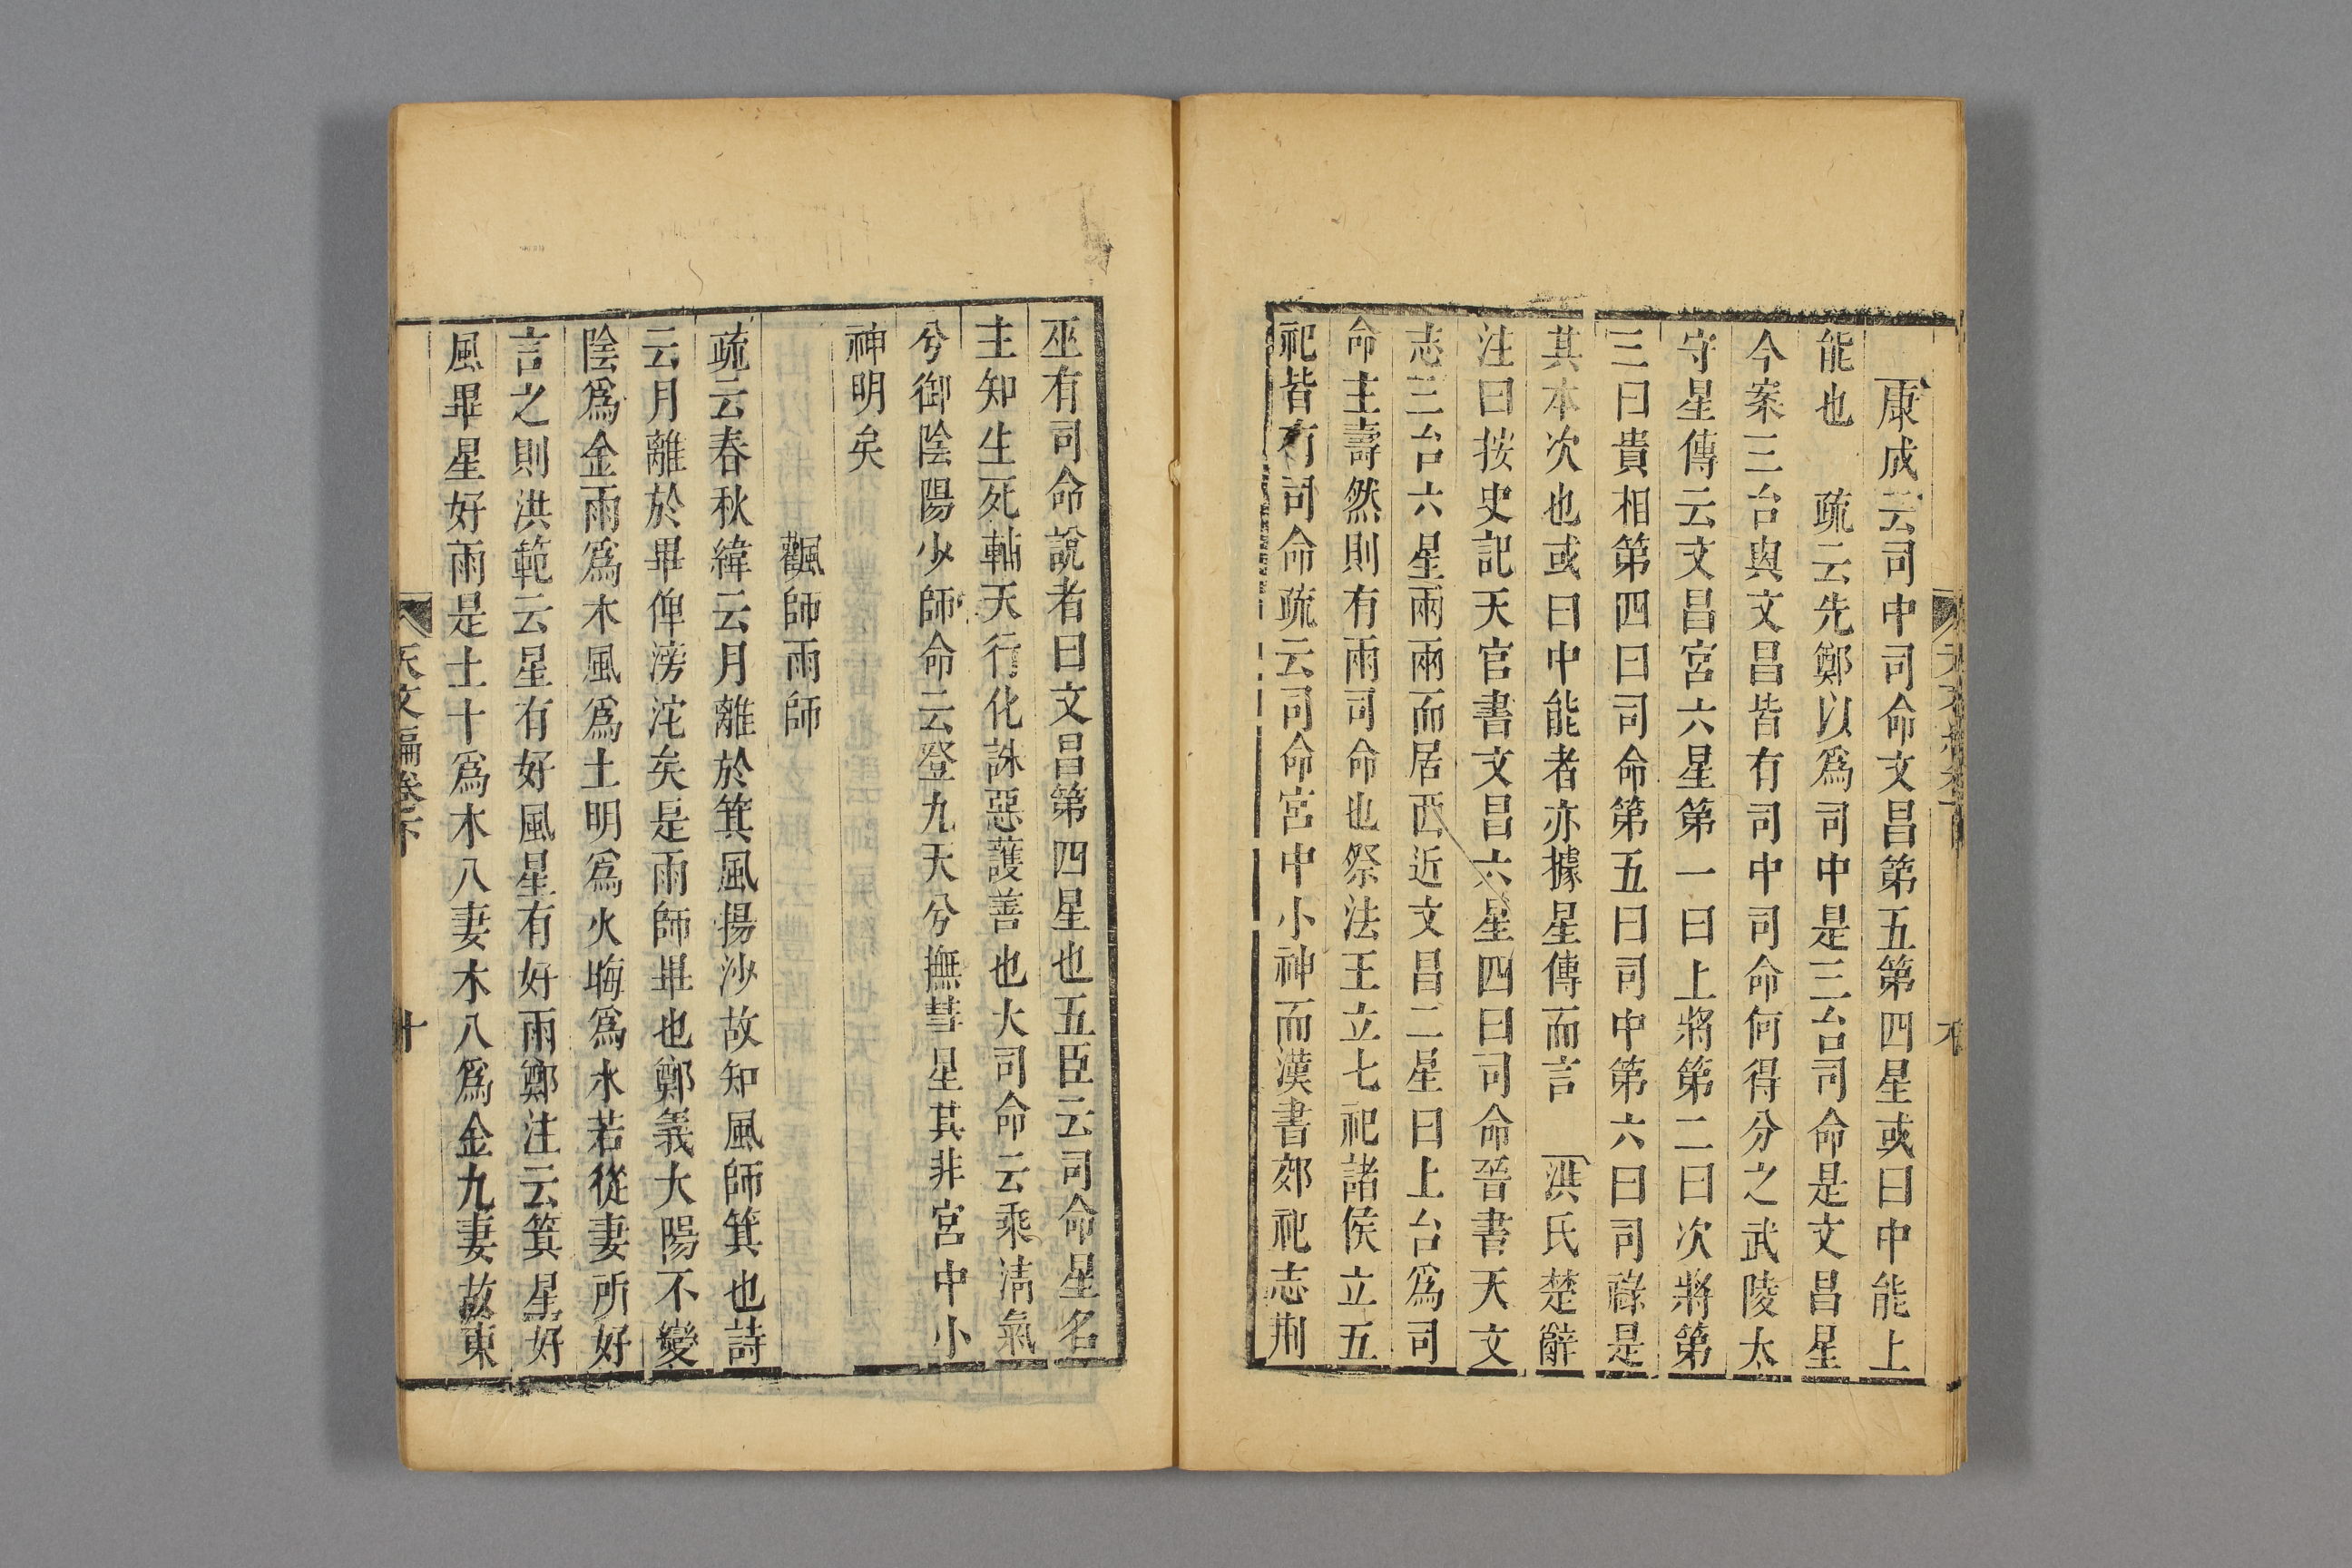 康成云司中司命文昌第五第四星或曰中能上
能也　疏云先鄭以爲司中是三台司命是文昌星
今案三台與文昌皆有司中司命何得分之武陵太
守星傳云文昌宮六星第一曰上將第二曰次將第
三曰貴相第四曰司命第五曰司中第六曰司祿是
其本次也或曰中能者亦據星傳而言　洪氏楚辭
注曰按史記天官書文昌六星四曰司命晉書天文
志三台六星兩兩而居西近文昌二星曰上台爲司
命主壽然則有兩司命也祭法王立七祀諸侯立五
祀皆有司命疏云司命宮中小神而漢書郊祀志荆
巫有司命說者曰文昌第四星也五臣云司命星名
主知生死輔天行化誅惡護善也大司命云乘淸氣
兮御陰陽少師命云登九天兮撫彗星其非宮中小
神明矣
飌師雨師
疏云春秋緯云月離於箕風揚沙故知風師箕也詩
云月離於畢俾滂沱矣是雨師畢也鄭義大陽不變
陰爲金雨爲木風爲土明爲火晦爲水若從妻所好
言之則洪範云星有好風星有好雨鄭注云箕星好
風畢星好雨是土十爲木八妻木八爲金九妻故東
天文編卷下
十